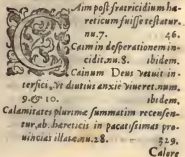 CAim post fratricidium hæ-
reticum fuisse testatur.
nu.7. 46.
Caim in desperationem in-
cidit.nu.8. ibidem.
Cainum Deus vetuit in-
terfici, vt diutius anxiè viueret.num.
9.& 10. ibidem,
Calamitates plurimæ summatim recensen-
tur,ab hæreticis in pacatissimas pro-
uincias illatæ.nu.28. 329.
Calore